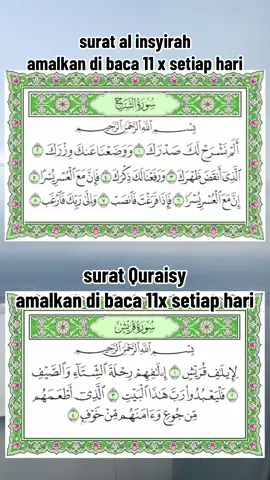 surat al insyirah
amalkan di baca 11 x setiap hari
سُورَةُ الشَّرْحِ
بِسْمِ اللَّهِ الرَّحْمَٰنِ الرَّحِيمِ
أَلَمْ نَشْرَحْ لَكَ صَدْرَكَ ١ وَوَضَعْنَا عَنكَ وِزْرَكَ ٢
الَّذِي أَنقَضَ ظَهْرَكَ ٣ وَرَفَعْنَا لَكَ ذِكْرَكَ ٤ فَإِنَّ مَعَ الْعُسْرِ يُسْرًا ٥
إِنَّ مَعَ الْعُسْرِ يُسْرًا ٦ فَإِذَا فَرَغْتَ فَانصَبْ ٧ وَإِلَىٰ رَبِّكَ فَارْغَب ٨
surat Quraisy
amalkan di baca 11x setiap hari
سُورَةُ قُرَيْشٍ
بِسْمِ اللَّهِ الرَّحْمَٰنِ الرَّحِيمِ
لِإِيلَافِ قُرَيْشٍ ١ إِۦلَافِهِمْ رِحْلَةَ الشِّتَاءِ وَالصَّيْفِ
٢ فَلْيَعْبُدُوا رَبَّ هَٰذَا الْبَيْتِ ٣ الَّذِي أَطْعَمَهُم
مِّن جُوعٍ وَءَامَنَهُم مِّنْ خَوْفٍ ٤